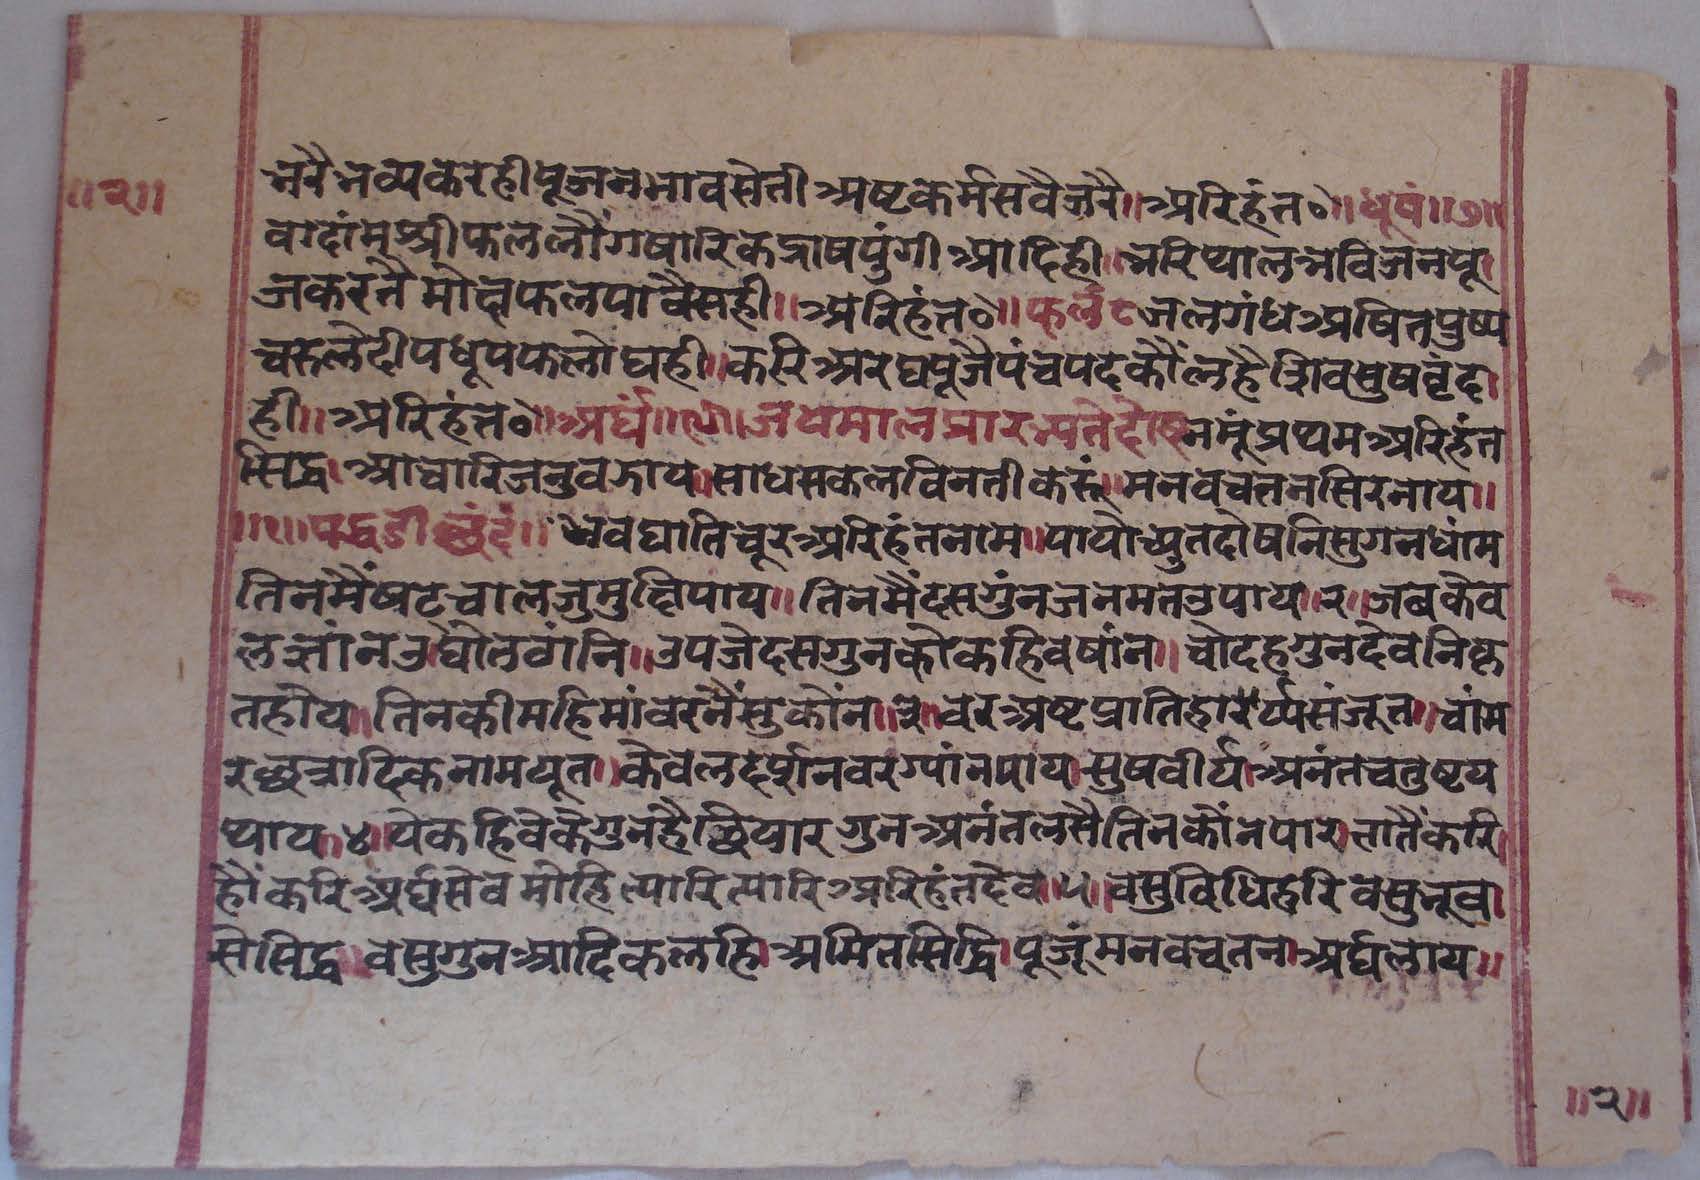 ॥२॥
भरै भव्य करेही पूजन भाव सेती अष्टकर्म सवै जरै॥ अरिहंत०॥ धूपं॥७॥
वादांम श्रीफल लौंग षारिक द्राष पुंगी आदिही॥ भरि थाल भविजन पू
ज करतै मोक्ष फल पावै सही॥ अरिहंत०॥ फलं ८ जलगंध अषित पुष्प
चरुले दीप धूप फलोघही॥ करि अरघ पूजै पंचपद कौं लहै शिव सुष वृंद
ही॥ अरिहंत०॥ अर्घं॥९॥ जयमाल प्रारभ्यते दोहा नमूं प्रथम अरिहंत
सिद्ध। आचारिज उवझाय॥ साध सकल विनती करूं॥ मनवचतन सिरनाय॥
॥१॥ पद्धडी छंद॥ भव घाति चूर अरिहंत नाम॥ पायो च्युत दोष निसुगन धांम
तिनमैं षट चाल जु मुक्षि पाय॥ तिनमैं दस गुंन जनमत उपाय॥२॥ जब केव
लज्ञांन उघोतवांनि॥ उपजे दस गुन को कहि वषांन॥ चोदह गुन देव निकृ
त होय॥ तिनकी महिमां वरनैं सु कोंन॥३॥ वर अष्ट प्रातिहारर्य्य संजूत॥ चांम
र छत्रादिक नाम यूत॥ केवल दर्शन वर ग्यांन पाय सुष वीर्य। अनंत चतुष्टय
थाय॥४॥ येक हि वेकै गुन है छियार गुन अनंत लसै तिन कौं न पार। तातैं करि
हौं करि अर्घ सेव मोहि त्यारि त्यारि अरिहंत देव॥५॥ वसु विधि हरि वसु भूव
से सिद्ध॥ वसुगुन आदिक लहि अमित सिद्धि। पूजूं मनवचतन अर्घ लाय॥
॥२॥